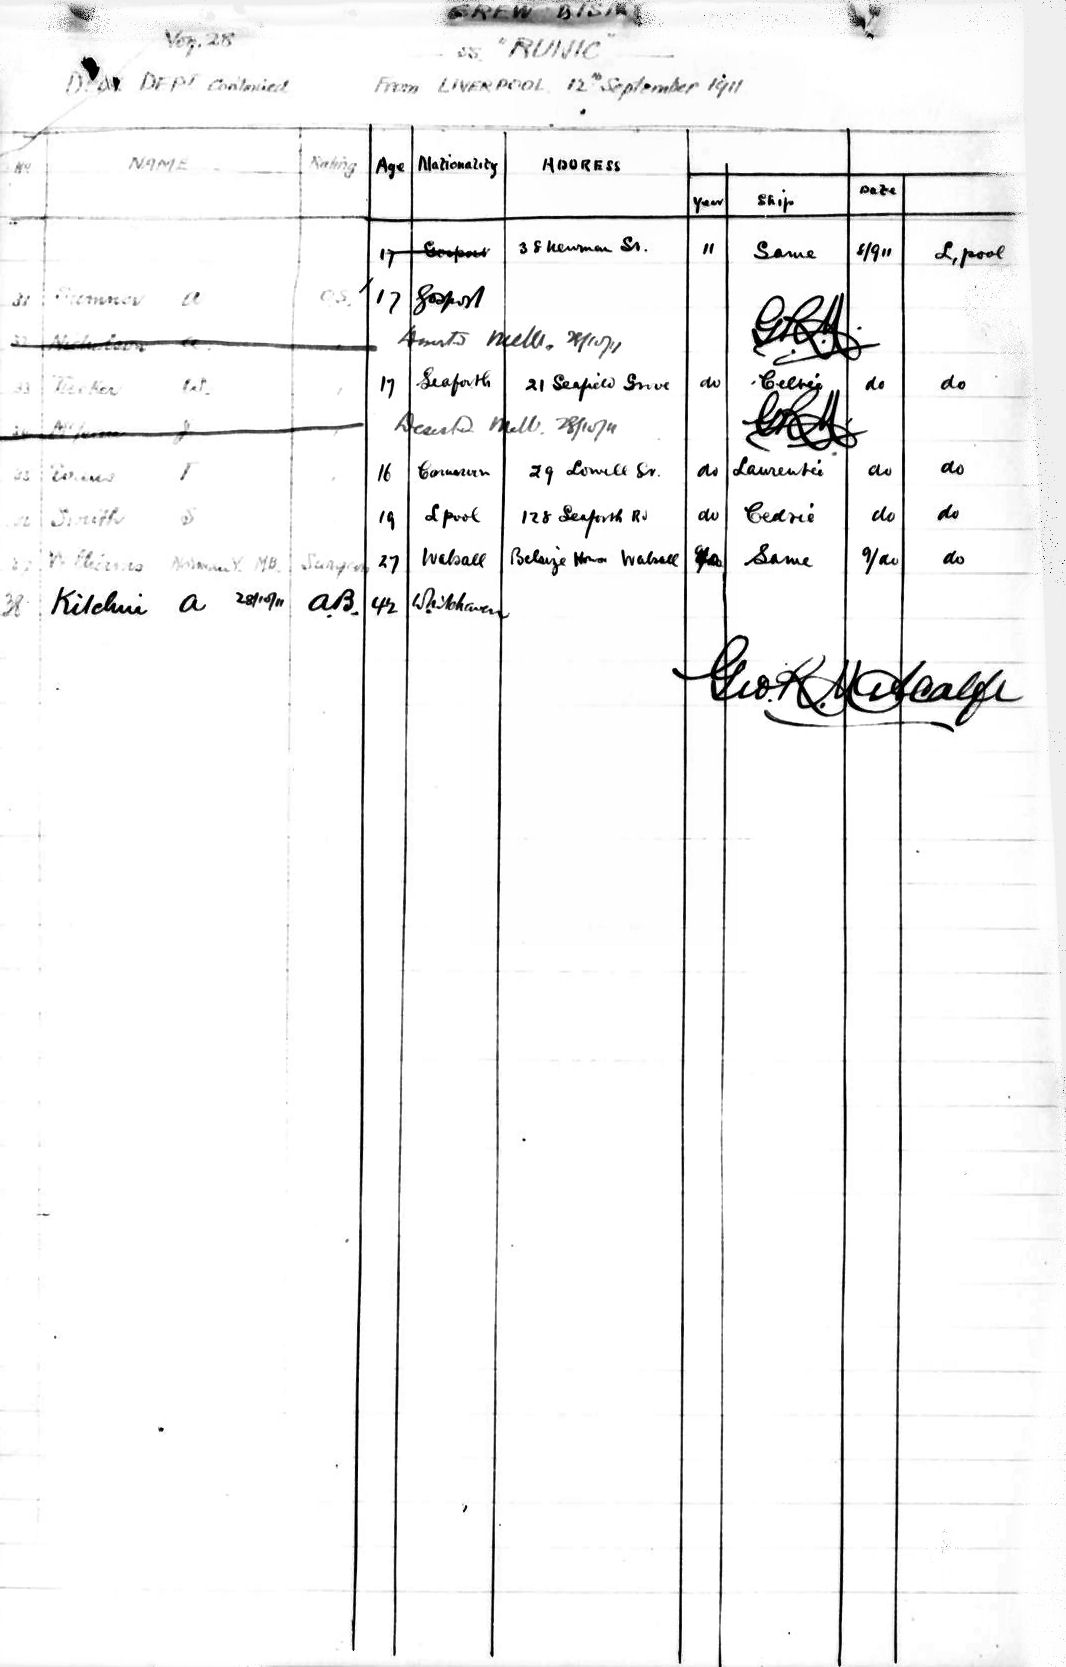 CREW LIST
Voy. 28
SS. "RUNIC"
DECK DEPT continued From LIVERPOOL. 12th September 1911
No NAME Rating Age Nationality ADDRESS
year Ship Date
17 Gosport 38 Newman St. 11 Same 8/9 11 L,pool
31 Sumner A O.S. 17 Gosport
32 Nicholson Deserted Melb. 28/10/11 G.R.M.
33 Tucker W. 17 Seaforth 21 Seafield Grove do Celtic do do
34 J Deserted Melb. 28/10/11 G.R.M.
35 Evans T 16 Carnarvon 29 Lowell St. do Laurentic do do
Smith S 19 Lpool 128 Seaforth Rd do Cedric do do
37 Williams Norman Y. MB. Surgeon 27 Walsall Belsize House Walsall Same 9/do do
38 Kitchin A 28/10/11 A.B. 42 Whitehaven
Geo. R. Metcalfe